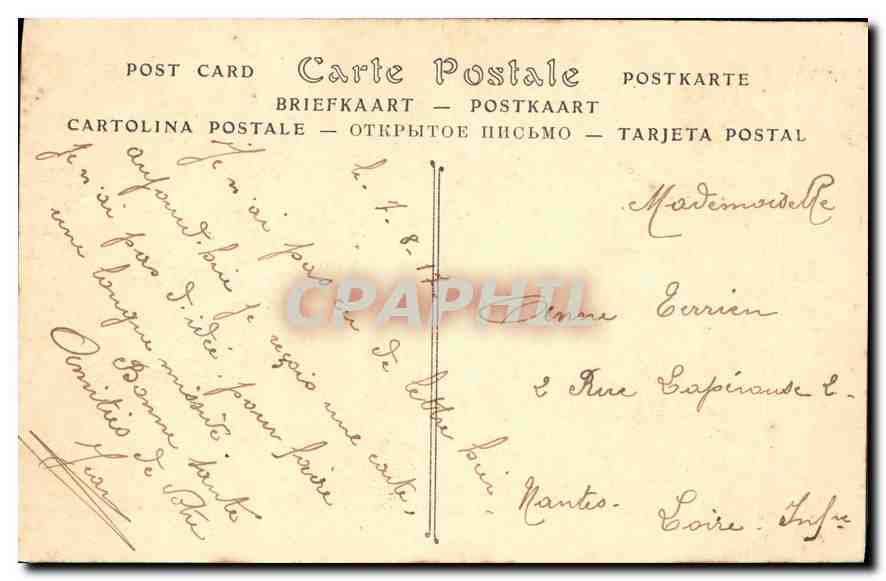 POST CARD Carte Postale POSTKARTE
BRIEFKAART — POSTKAART
CARTOLINA POSTALE — ОТКРЫТОЕ ПИСЬМО — TARJETA POSTAL
le. 7. 8-17
Je n'ai pas eu de lettre hier.
aujourd. hui je reçois une carte.
Je n'ai pas d'idée pour faire
une longue missive.
Bonne santé
Amitiés de Votre
Jean
Mademoiselle
Anne Terrien
2 Rue Lapérouse 2-
Nantes-
Loire - Infre
CPAPHIL